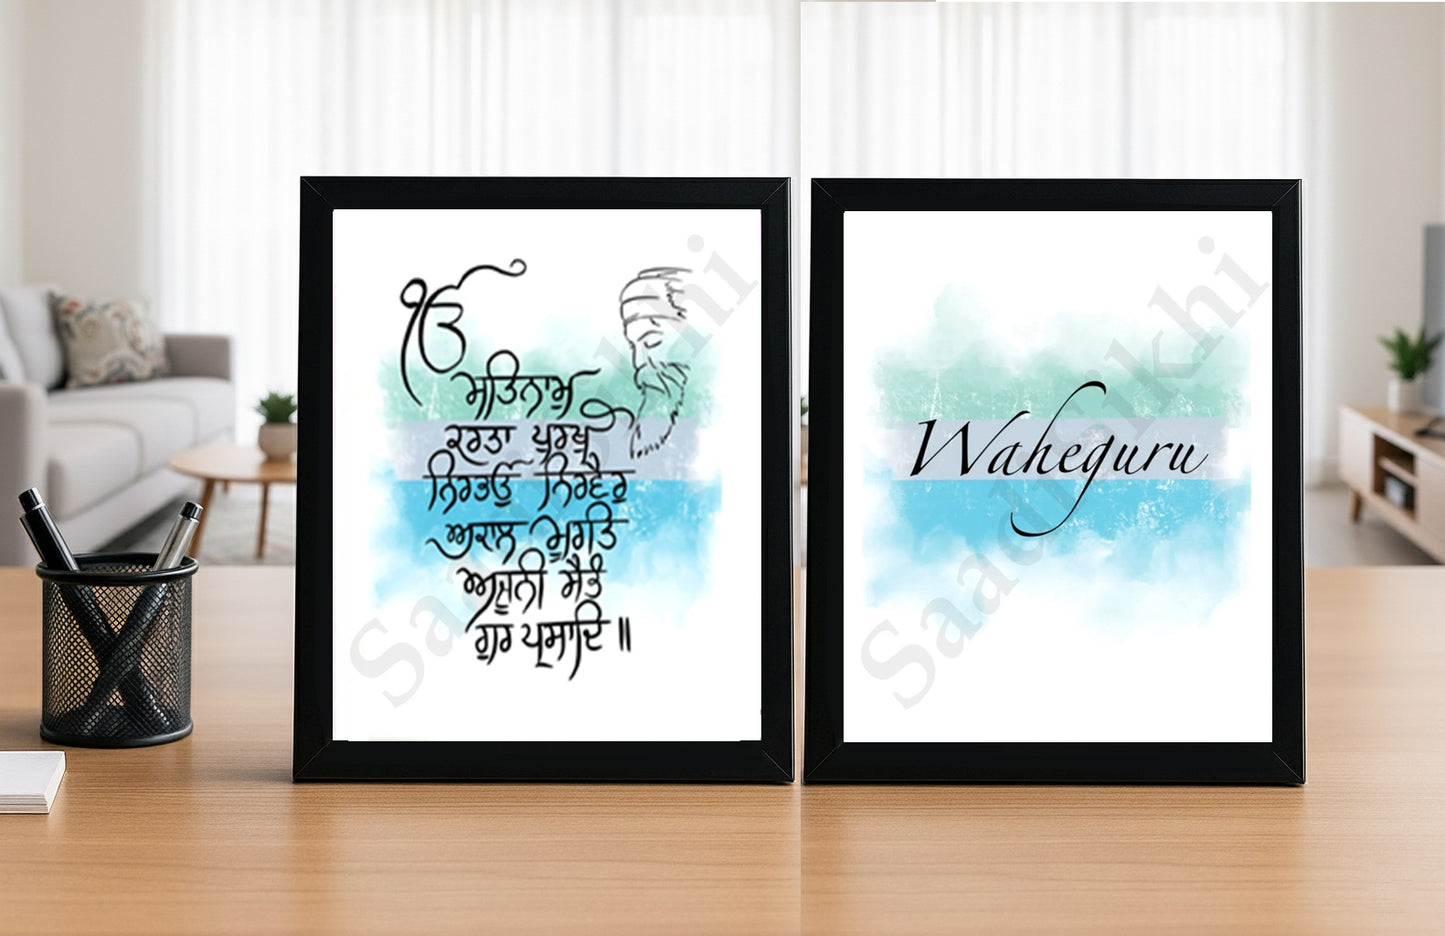 ੴ
ਸਤਿਨਾਮੁ
ਕਰਤਾ ਪੁਰਖੁ
ਨਿਰਭਉ ਨਿਰਵੈਰੁ
ਅਕਾਲ ਮੂਰਤਿ
ਅਜੂਨੀ ਸੈਭੰ
ਗੁਰ ਪ੍ਰਸਾਦਿ ॥
Saadi Sikhi
Waheguru
Saadi Sikhi